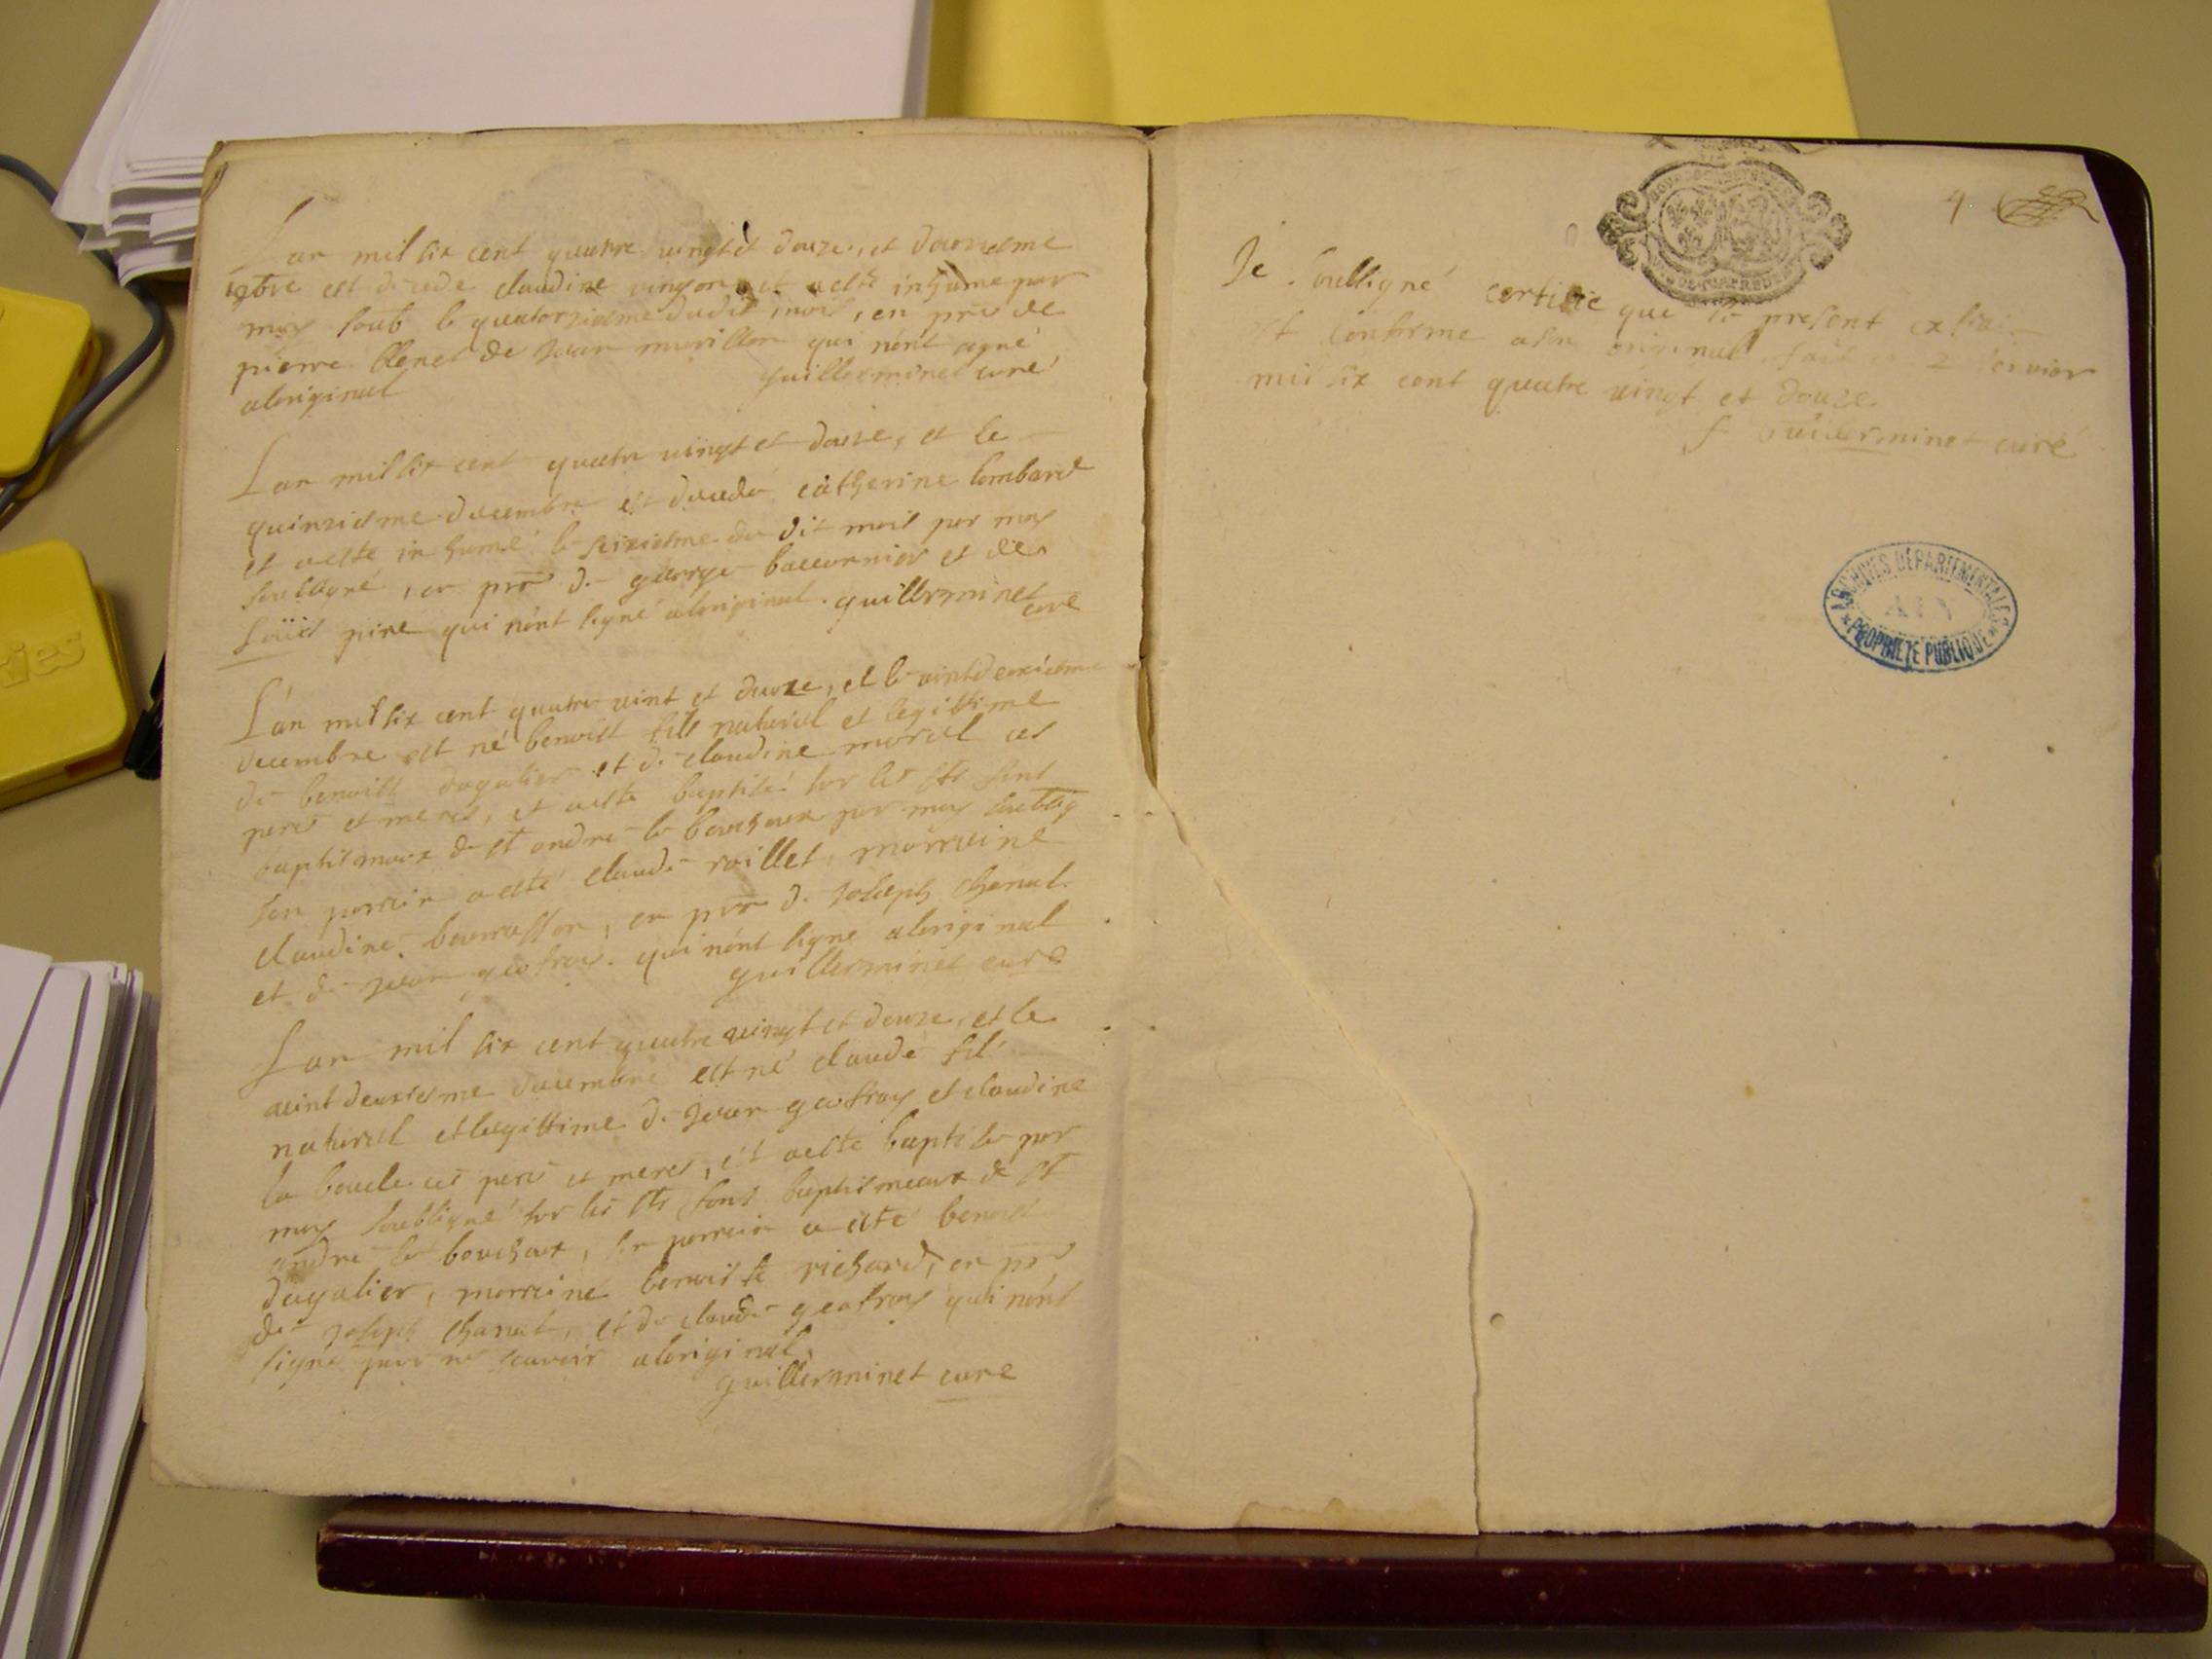 Lan mil six cent quatre vingt et douze, et douziesme
est decede claudine et a esté inhume par
moy soub le quatorziesme dudit mois, en pnce de
pierre de Jean qui nónt signé
aloriginal guillerminet curé
Lan mil six cent quatre vingt et douze, et le
quinziesme decembre est decedé catherine lombard
et a esté inhumé le seiziesme du dit mois par moy
soubsigné, en pnce de george et de
Loüis pire qui nónt signé aloriginal. guillerminet
curé
Lán mil six cent quatre vint et douze, et le vintdeuxiesme
decembre est né benoist fils naturel et legittime
de benoist dagalier et de claudine morel ces
peres et meres, et a esté baptisé sur les sts fons
baptismaux de st andre le bouchoux par moy soubsig
son parrain a esté claude raillet, marraine
claudine bourrasson, en pnce de Joseph chanal
et de Jean geofray. qui nónt signe aloriginal
guillerminet curé
Lan mil six cent quatre vingt et douze, et le
vint deuxiesme decembre est né claude fils
naturel et legittime de Jean geofray et claudine
la boucle ces peres et meres, et a esté baptisé par
moy soubsigné sur les sts fons baptismaux de st
andre le bouchoux, son parrain a esté benoist
dagalier, marraine benoiste richard, en pnce
de Joseph chanal, et de claude geofray qui nónt
signé pour ne scavoir aloriginal,
guillerminet curé
4
Je soubsigné certifie que le present extrait
est conforme a son original fait 2 Janvier
mil six cent quatre vingt et douze.
f guillerminet curé
ARCHIVES DÉPARTEMENTALES
AIN
PROPRIÉTÉ PUBLIQUE